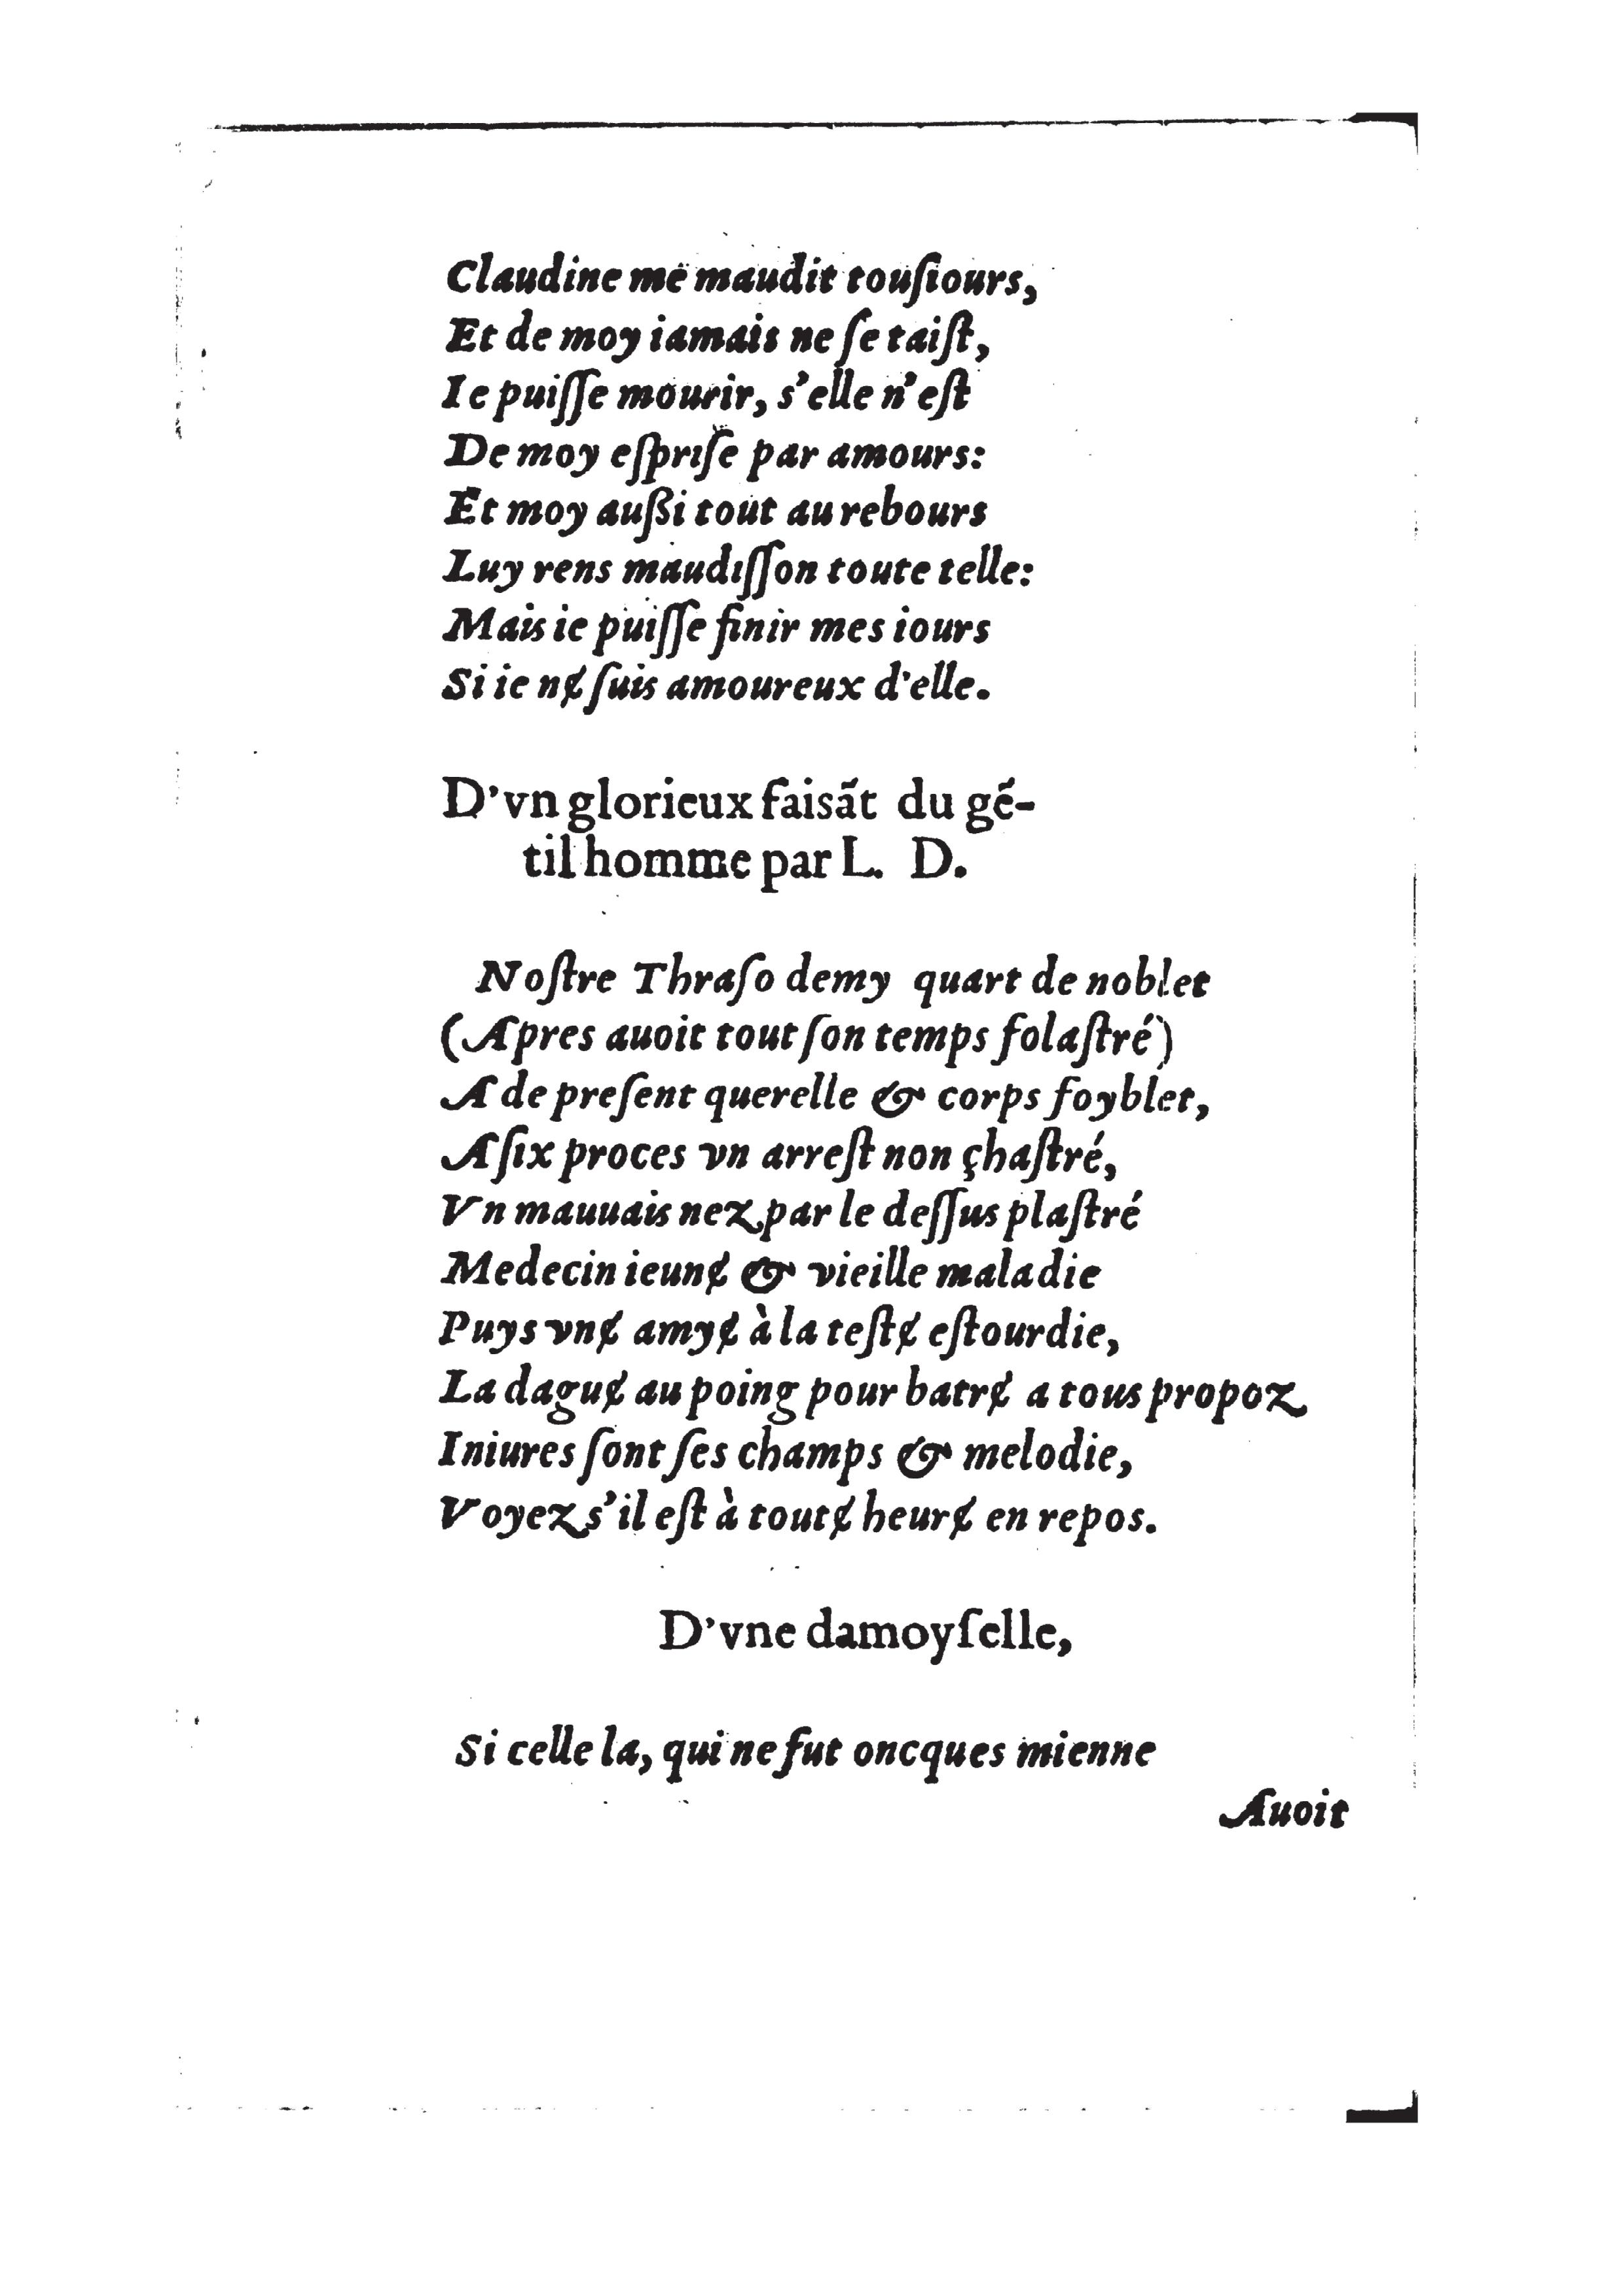 Claudine me maudit touſiours,
Et de moy iamais ne ſe taiſt,
Ie puiſſe mourir, s'elle n'eſt
De moy eſpriſe par amours:
Et moy außi tout au rebours
Luy rens maudiſſon toute telle:
Mais ie puiſſe finir mes iours
Si ie nɇ ſuis amoureux d'elle.
D'vn glorieux faisāt du gē-
til homme par L. D.
Noſtre Thraſo demy quart de noblet
(Apres auoit tout ſon temps folaſtré)
A de preſent querelle & corps foyblet,
A ſix proces vn arreſt non çhaſtré,
Vn mauuais nez par le deſſus plaſtré
Medecin ieunɇ & vieille maladie
Puys vnɇ amyɇ à la teſtɇ eſtourdie,
La daguɇ au poing pour batrɇ a tous propoz
Iniures ſont ſes champs & melodie,
Voyez s'il eſt à toutɇ heurɇ en repos.
D'vne damoyſelle,
Si celle la, qui ne fut oncques mienne
Auoit